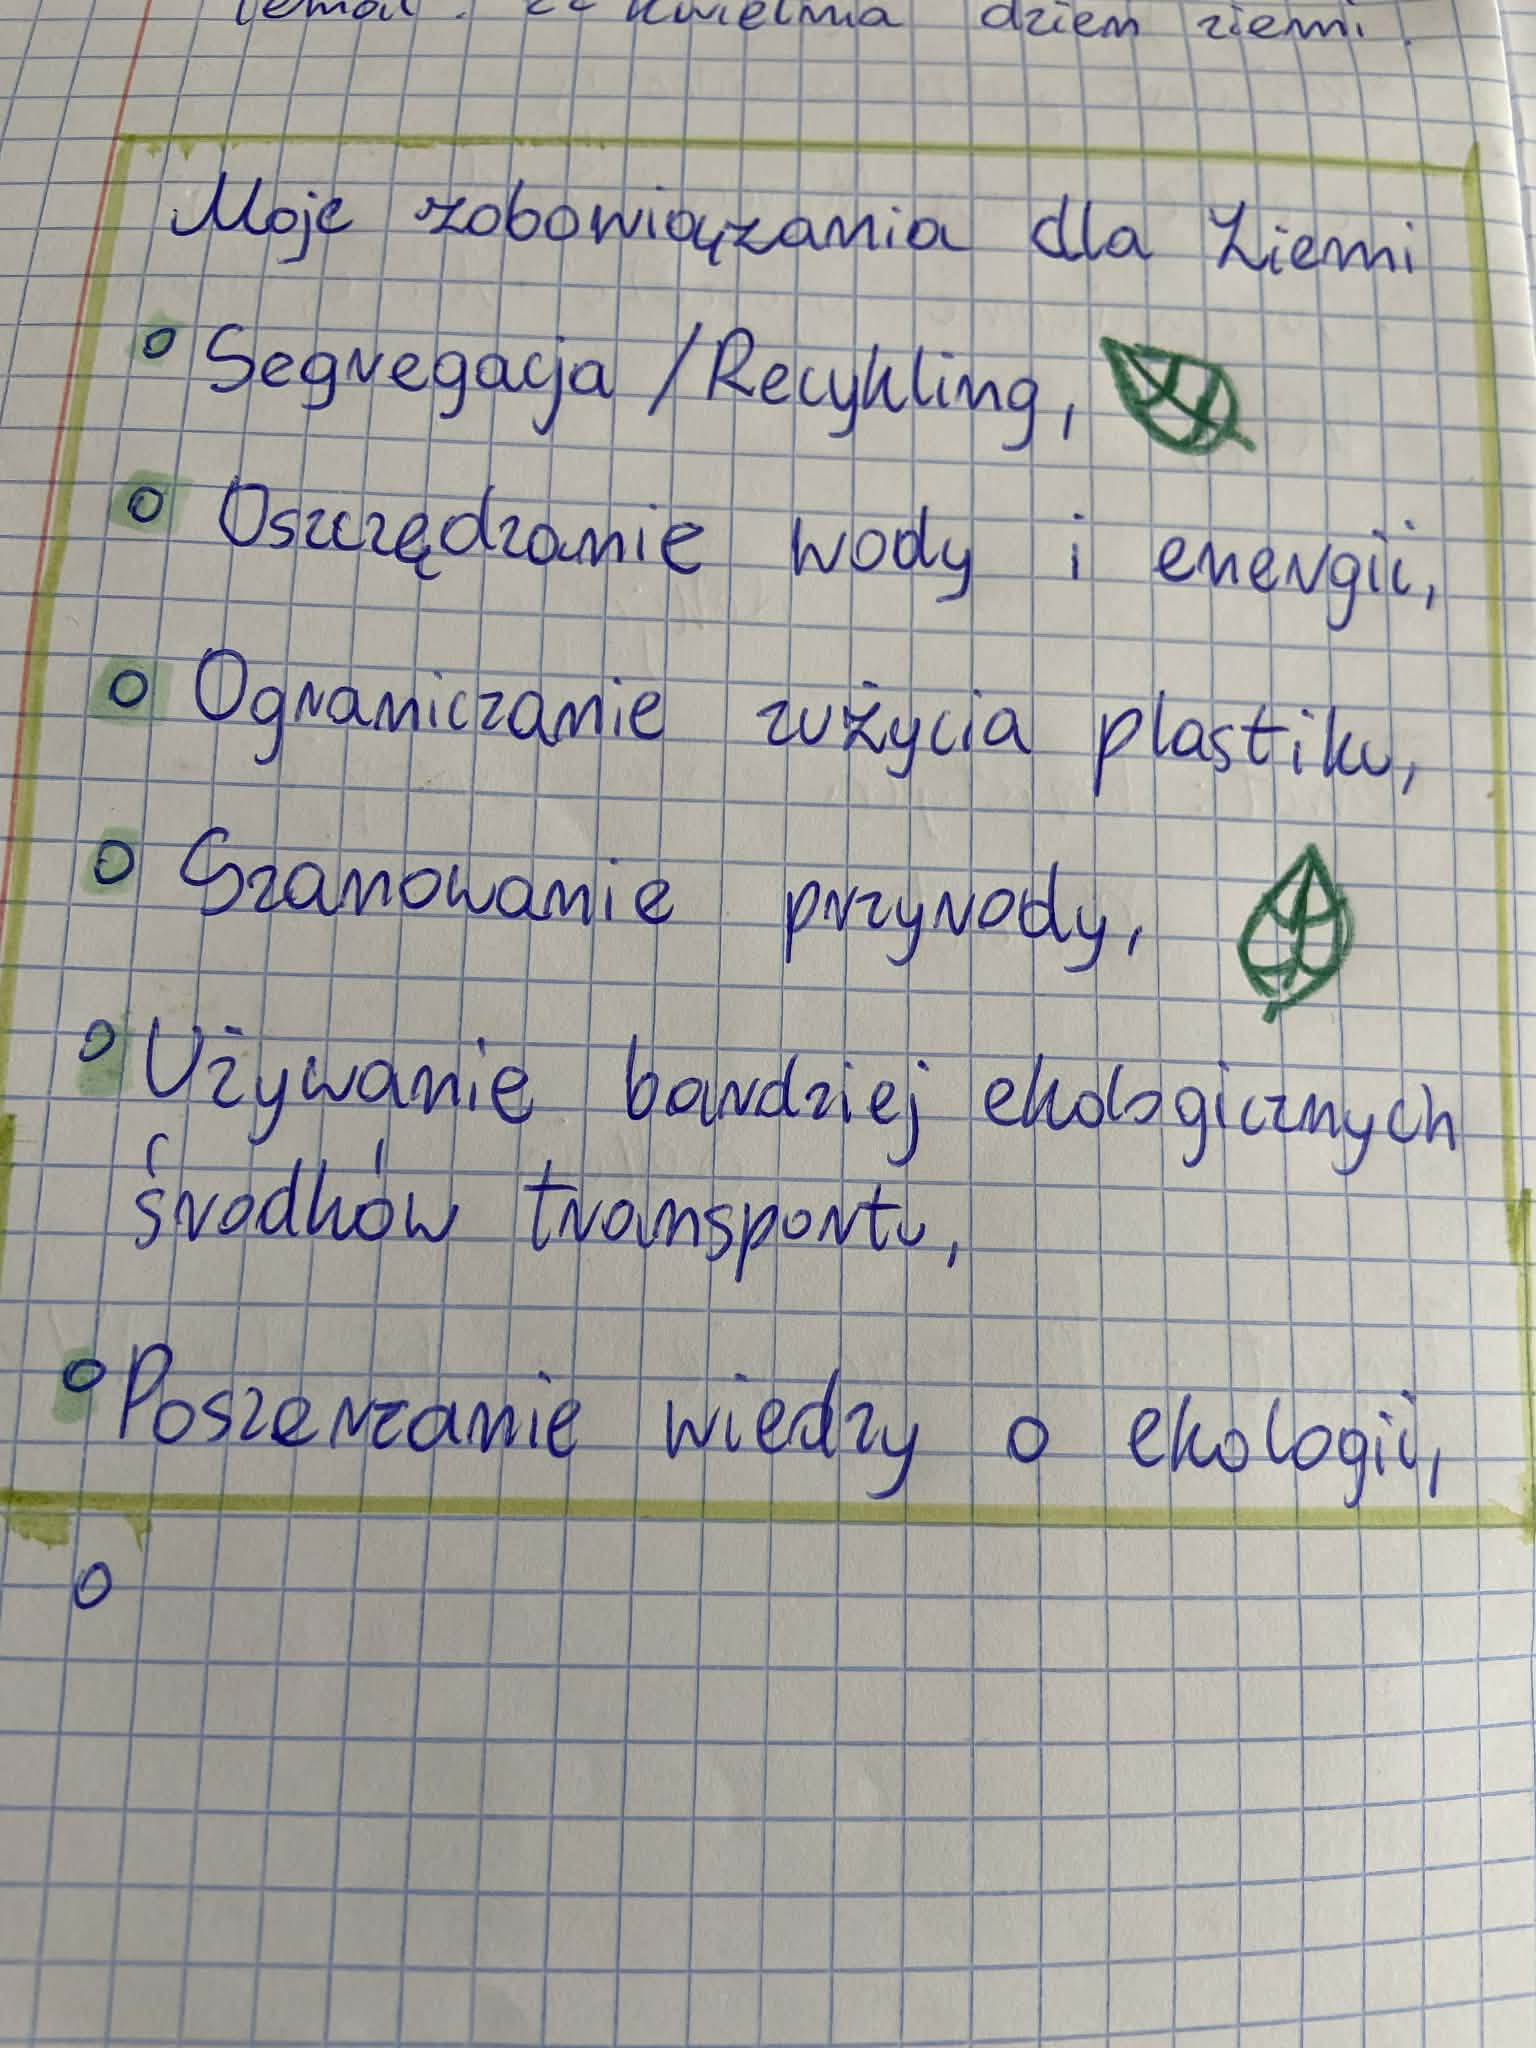 Temat: 22 kwietnia dzień ziemi.
Moje zobowiązania dla Ziemi
Segregacja / Recykling,
Oszczędzanie wody i energii,
Ograniczanie zużycia plastiku,
Szanowanie przyrody,
Używanie bardziej ekologicznych
środków transportu,
Poszerzanie wiedzy o ekologii,